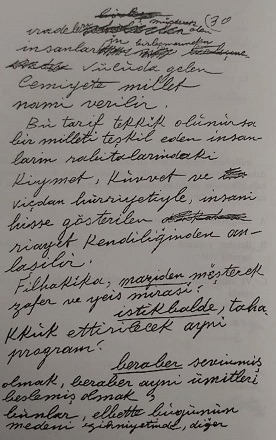 (30
irade
olan
insanların birleşmesinden
vücuda gelen
Cemiyete millet
namı verilir.
Bu tarif tetkik olunursa
bir milleti teşkil eden insan-
ların rabıtalarındaki
kıymet, kuvvet ve
vicdan hürriyetiyle, insani
hisse gösterilen
riayet kendiliğinden an-
laşılır.
Filhakika, maziden müşterek
zafer ve yeis mirası;
istikbalde, taha-
kkuk ettirilecek ayni
program;
beraber sevinmiş
olmak, beraber ayni ümitleri
beslemiş olmak;
bunlar, elbette bugünün
medeni zihniyetinde, diğer